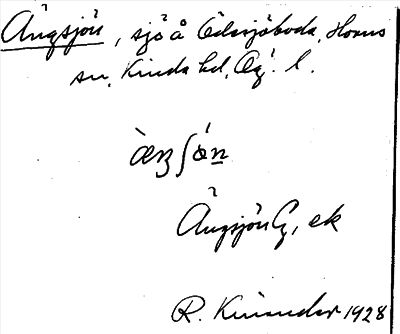 Ängsjön, sjö å Ödesjöboda, Horns
sn, Kinda hd, Ög. l.
Ängsjön G, ek
R. Kinander 1928